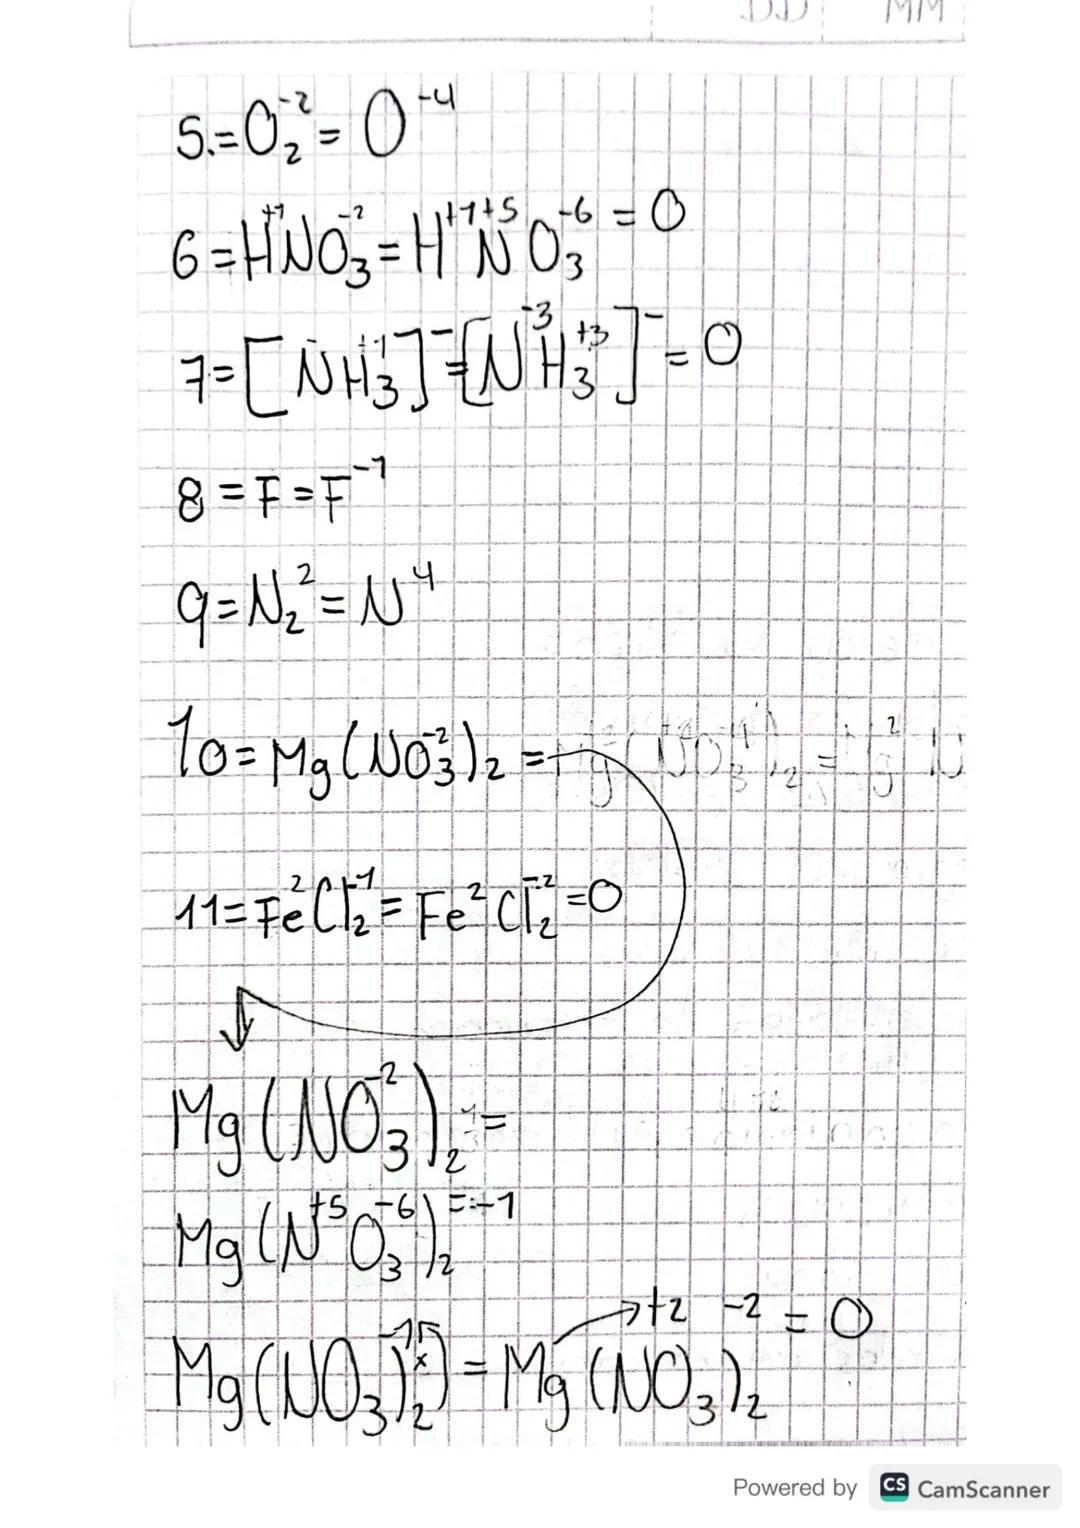 DD MM
5.=O₂⁻²=O⁻⁴
6=H⁺¹NO₃⁻²=H⁺¹N⁺⁵O₃⁻⁶=0
7=[NH₃⁺¹]⁻=[N⁻³H₃⁺³]⁻=0
8=F=F⁻¹
9=N₂²=N⁴
10=Mg(NO₃⁻²)₂=
11=Fe²Cl₂⁻¹=Fe²Cl₂⁻²=0
Mg(NO₃⁻²)₂=
Mg(N⁺⁵O₃⁻⁶)₂=-1
+2 -2 = 0
Mg(NO₃)₂⁻¹=Mg(NO₃)₂
Powered by CS CamScanner